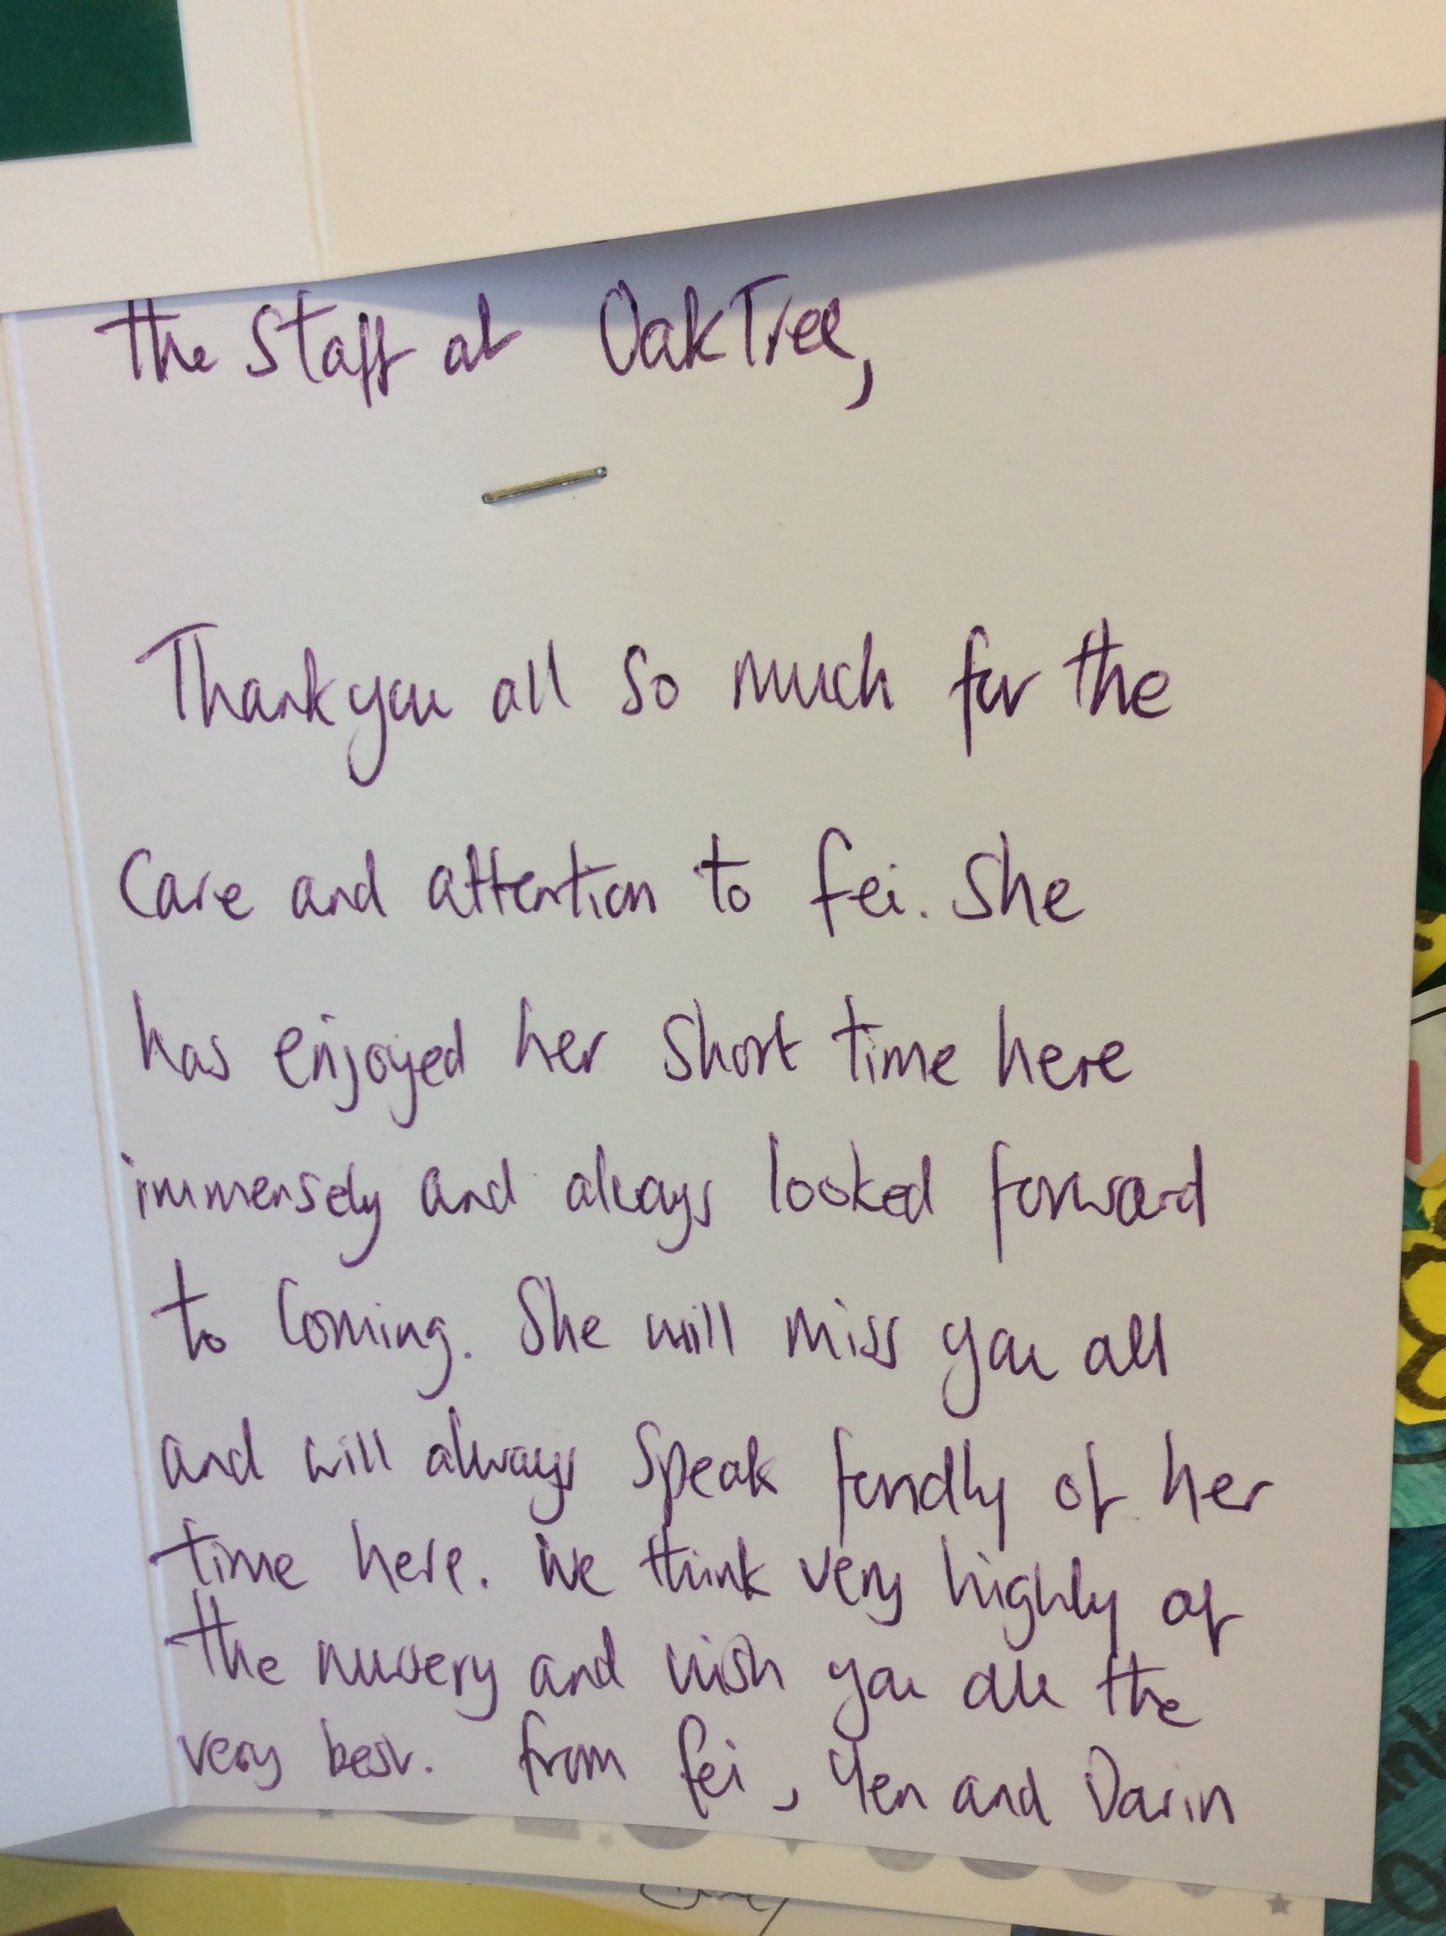 The Staff at OakTree,
Thank you all so much for the
Care and attention to Fei. She
has enjoyed her short time here
immensely and always looked forward
to Coming. She will miss you all
and will always Speak fondly of her
time here. We think very highly of
the nursery and wish you all the
very best. From Fei, Yen and Darin